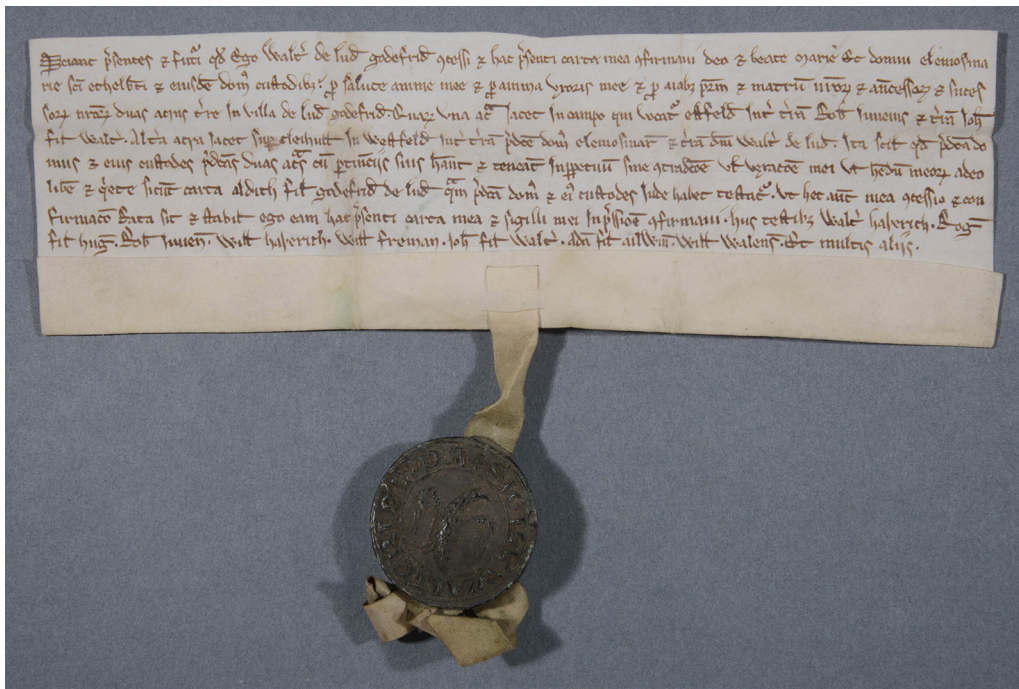 Sciant p̃sentes ⁊ futuͥ qđ Ego Walt̃ de luđ godefriđ ꝯcessi ⁊ hac p̃senti carta mea ꝯfirmaui deo ⁊ beate marie Et domui elemosina
rie sc̃i ethelƀti ⁊ eiusdē dom᷒ custodibꝫ ꝓ salute anime mee ⁊ ꝓ anima vxoris mee ⁊ ꝓ aīabꝫ pr̃m ⁊ matrū nr̃oꝝ ⁊ an̄cessoꝝ ⁊ succes
soꝝ nr̃oꝝ duas acras t̃re In villa de luđ godefriđ. Quaꝝ vna ac̃ Iacet In campo qui vocat᷒ estfeld Int̃ t̃rā Roƀ Iuuenis ⁊ t̃rā Joħ
fil̃ Walt̃. Alt̃a acra iacet In Westfelđ int̃ t̃rā p̃dc̃e dom᷒ elemosinar̃ ⁊ t̃rā dñi Walt̃ de luđ. Ita scil̃ qđ p̃dc̃a do
mus ⁊ eius custodes p̃dc̃as duas ac̃s cū ptinēciis suis hāant ⁊ teneāt Inppetuū sine ꝯtradc̃oe vl̃ vexac̃oe mei vl̃ hedū meoꝝ adeo
libe ⁊ q̃ete sicut carta aldith fil̃ godefriđ de luđ q̃m p̃dc̃a dom᷒ ⁊ ei᷒ custodes Inde habet testat᷒. Vt hec aut̃ mea ꝯcessio ⁊ con
firmac̃o Rata sit ⁊ stabil̃ ego eam hac p̃senti carta mea ⁊ sigilli mei Inp̃ssiōe ꝯfirmaui. hiis testibꝫ Walt̃ haserich. Rog̃
fil̃ hug̃. Roƀ Iuuen̄. Will̃ haserich. Will̃ freman. Joħ fil̃ Walt̃. adā fil̃ ailwin̄. Will̃ Walens̃. Et multis aliis.